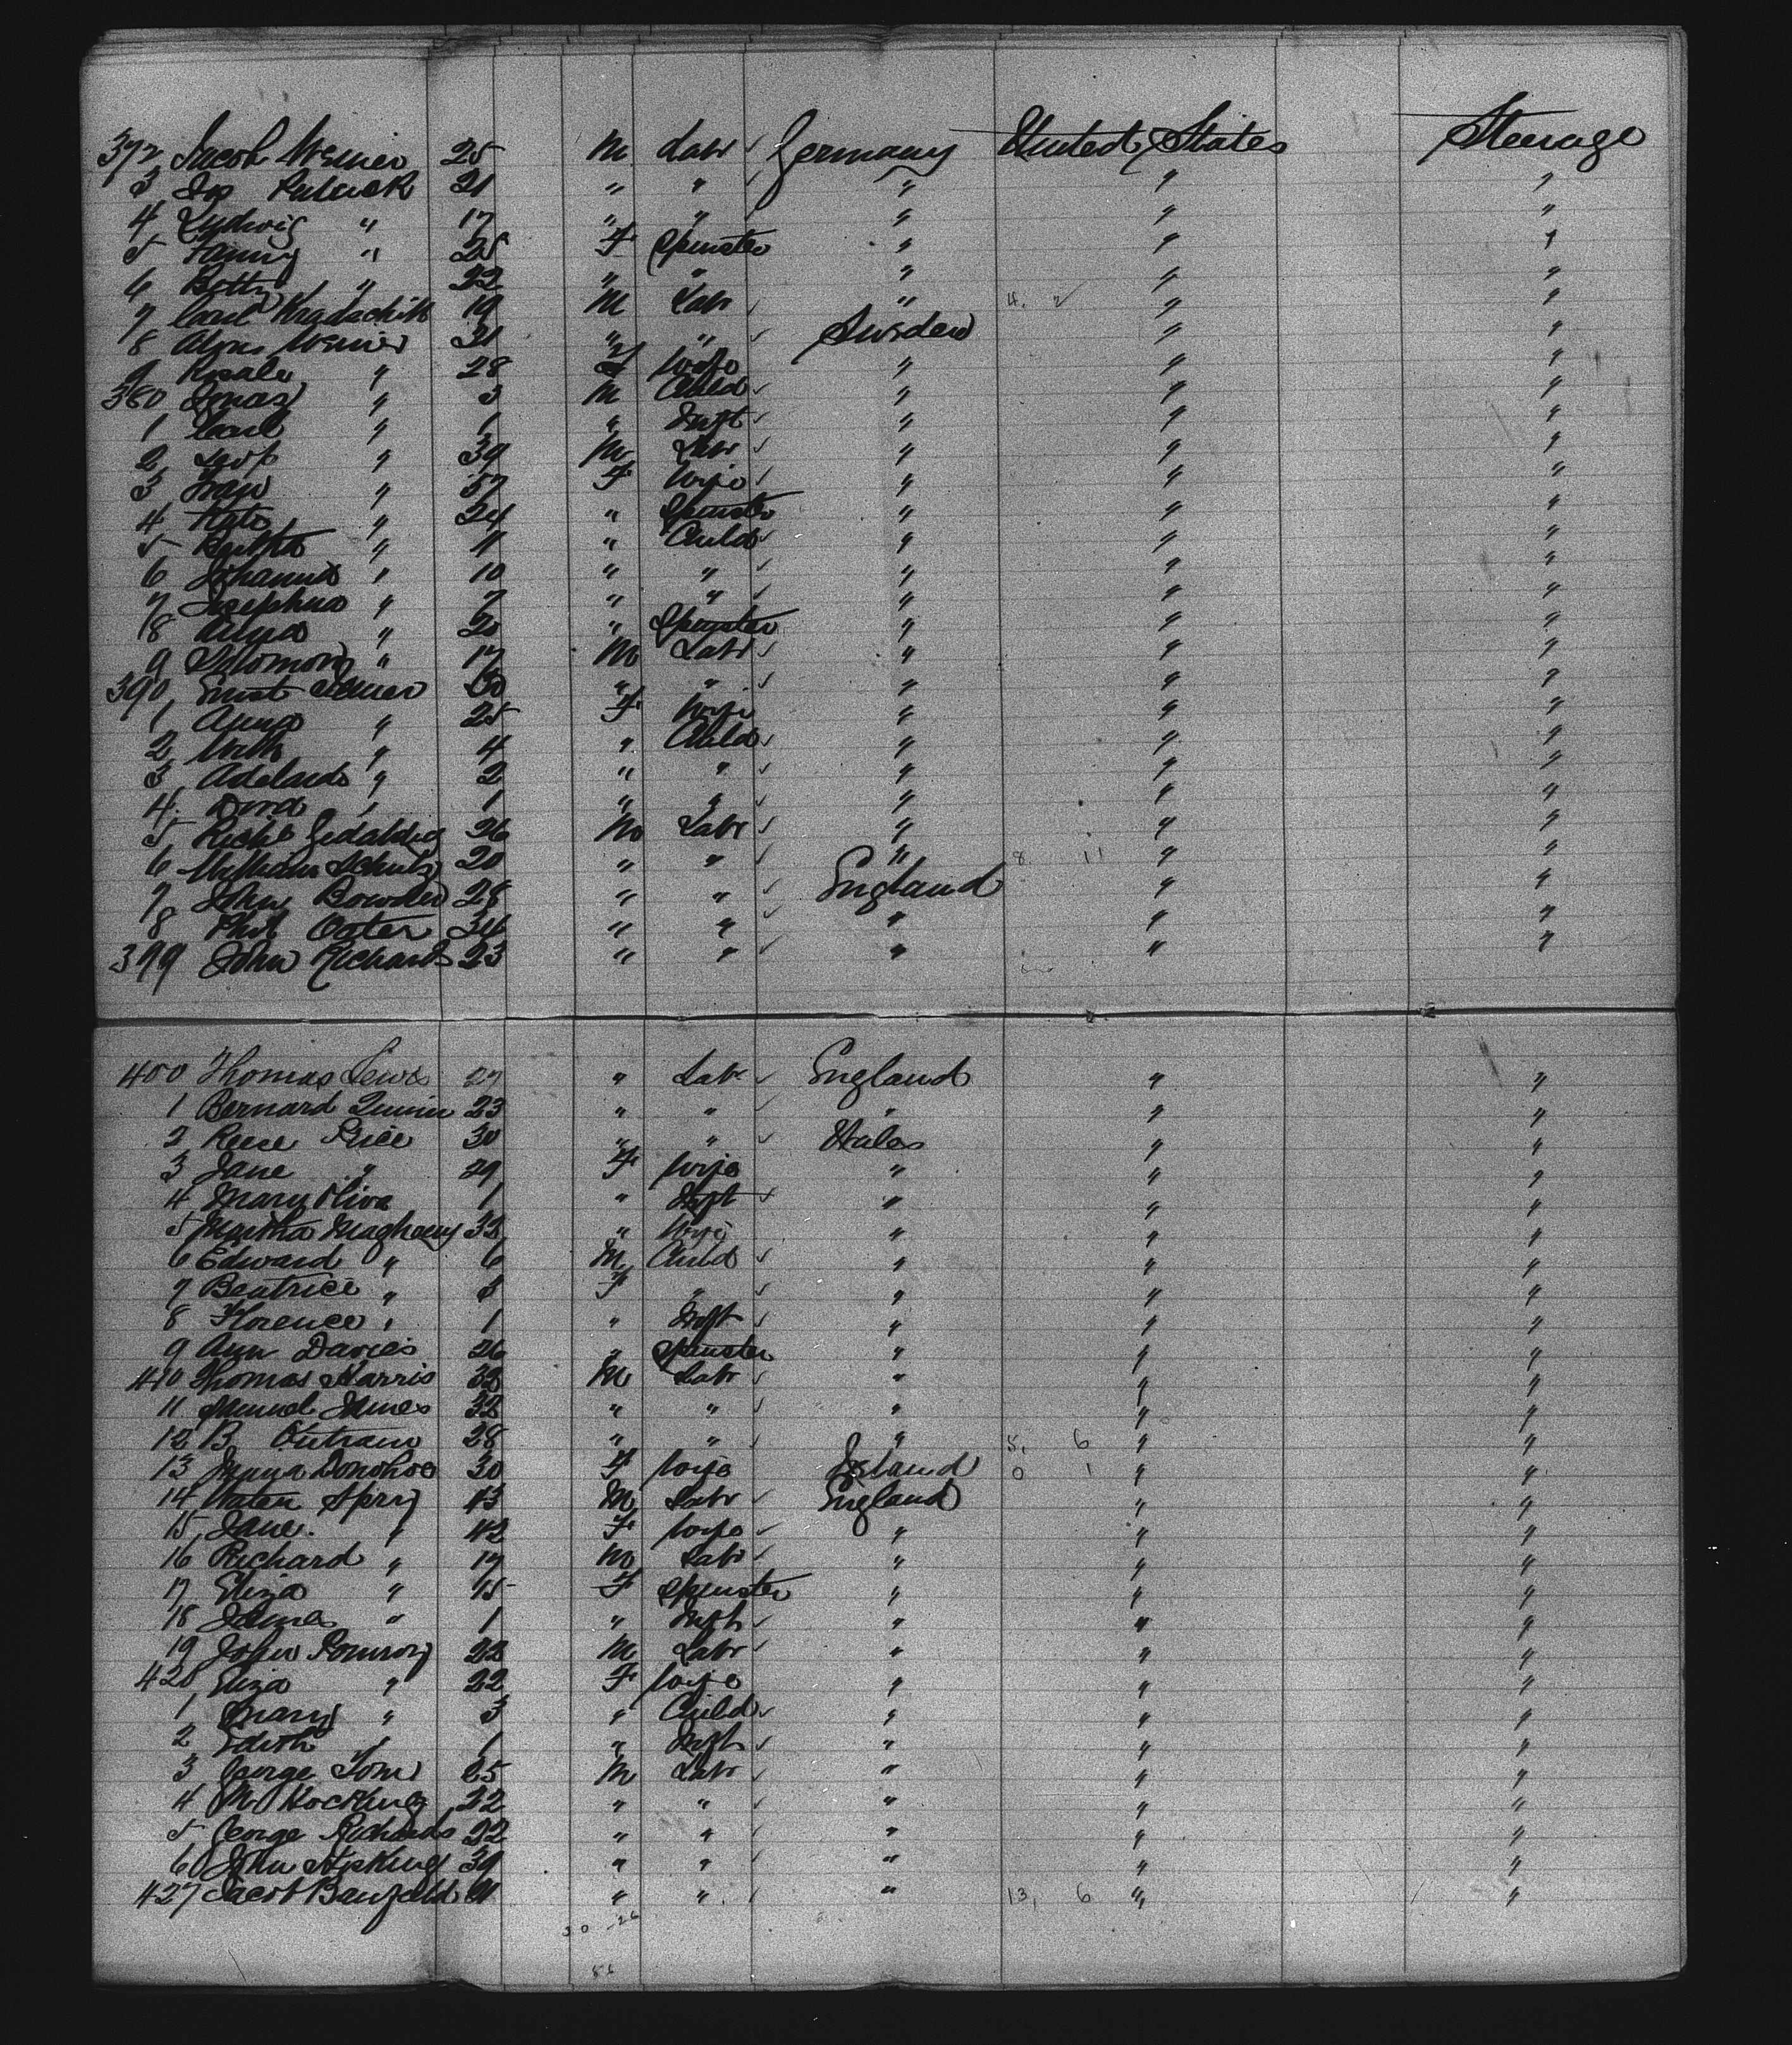 372 Jacob Werner 25 M Labr ✓ Germany United States Steerage
3 Patrick 21 " " ✓ " " "
4 Ludwig " 17 " " ✓ " " "
5 Fanny " 25 F Spinster " " "
6 Betty " 22 " " " " "
7 Carl 19 M Labr ✓ " 4. 2 " "
8 Werner 31 " " ✓ Sweden " "
9 Rosale " 28 F Wife " " "
380 Ignaz " 3 M Child ✓ " " "
1 Carl " 1 " Inft ✓ " " "
2 " 39 M Labr ✓ " " "
3 " 57 F Wife ✓ " " "
4 Kate " 24 " Spinster " " "
5 Bertha " 11 " Child ✓ " " "
6 Johanna " 10 " " ✓ " " "
7 Josephus " 7 " " ✓ " " "
8 " 20 " Spinster " " "
9 Solomon " 17 M Labr ✓ " " "
390 Ernst 30 " " ✓ " " "
1 Anna " 25 F Wife " " "
2 " 4 " Child ✓ " " "
3 Adelaide " 2 " " ✓ " " "
4 Dora " 1 " " ✓ " " "
5 Richd 26 M Labr ✓ " " "
6 William Schulz 20 " " ✓ " 8 11 " "
7 John Bowden 28 " " ✓ England " "
8 Phil Oater 34 " " ✓ " " "
399 John Richards 23 " " ✓ " " "
400 Thomas Lewis 27 " Labr ✓ England " "
1 Bernard Quinn 23 " " ✓ " " "
2 Reese Price 30 " " ✓ Wales " "
3 Jane " 29 F Wife " " "
4 Mary Oliva 1 " Inft ✓ " " "
5 Martha 32 " Wife " " "
6 Edward " 6 M Child ✓ " " "
7 Beatrice " F " ✓ " " "
8 Florence " 1 " Inft ✓ " " "
9 Ann Davies 26 " Spinster " " "
410 Thomas Harris 32 M Labr ✓ " " "
11 Samuel James 32 " " ✓ " " "
12 B Outram 28 " " ✓ " 5, 6 " "
13 Donohoe 30 F Wife Ireland 0 1 " "
14 43 M Labr ✓ England " "
15 Jane " 42 F Wife ✓ " " "
16 Richard " 17 M Labr ✓ " " "
17 Eliza " 15 F Spinster " " "
18 James " 1 " Inft ✓ " " "
19 John Pomroy 22 M Labr ✓ " " "
420 Eliza " 22 F Wife " " "
1 Mary " 3 " Child ✓ " " "
2 Edith " 1 " Inft ✓ " " "
3 George Tom 25 M Labr ✓ " " "
4 Hocking 22 " " ✓ " " "
5 George Richards 22 " " ✓ " " "
6 John 39 " " ✓ " " "
427 Jacob " " ✓ " 13, 6 " "
30 - 26